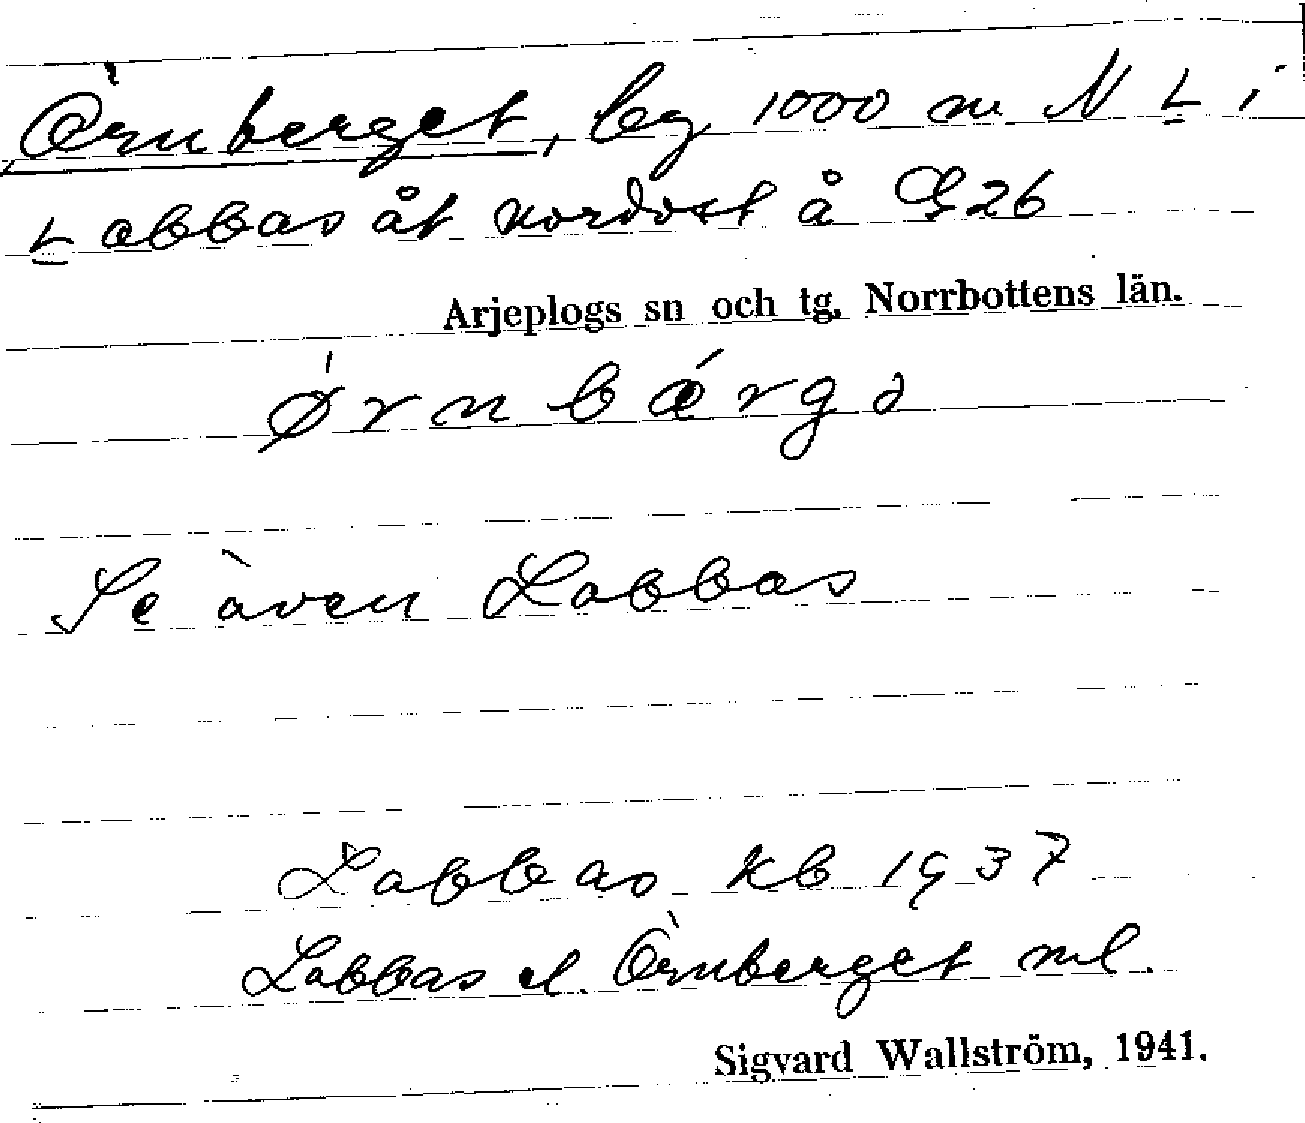 Örnberget, bg 1000 m N L i
Labbas åt nordost å G26
Arjeplogs sn och tg. Norrbottens län.
ørnbærgə
Se även Labbas
Labbas kb 1937
Labbas el. Örnberget ml.
Sigvard Wallström, 1941.